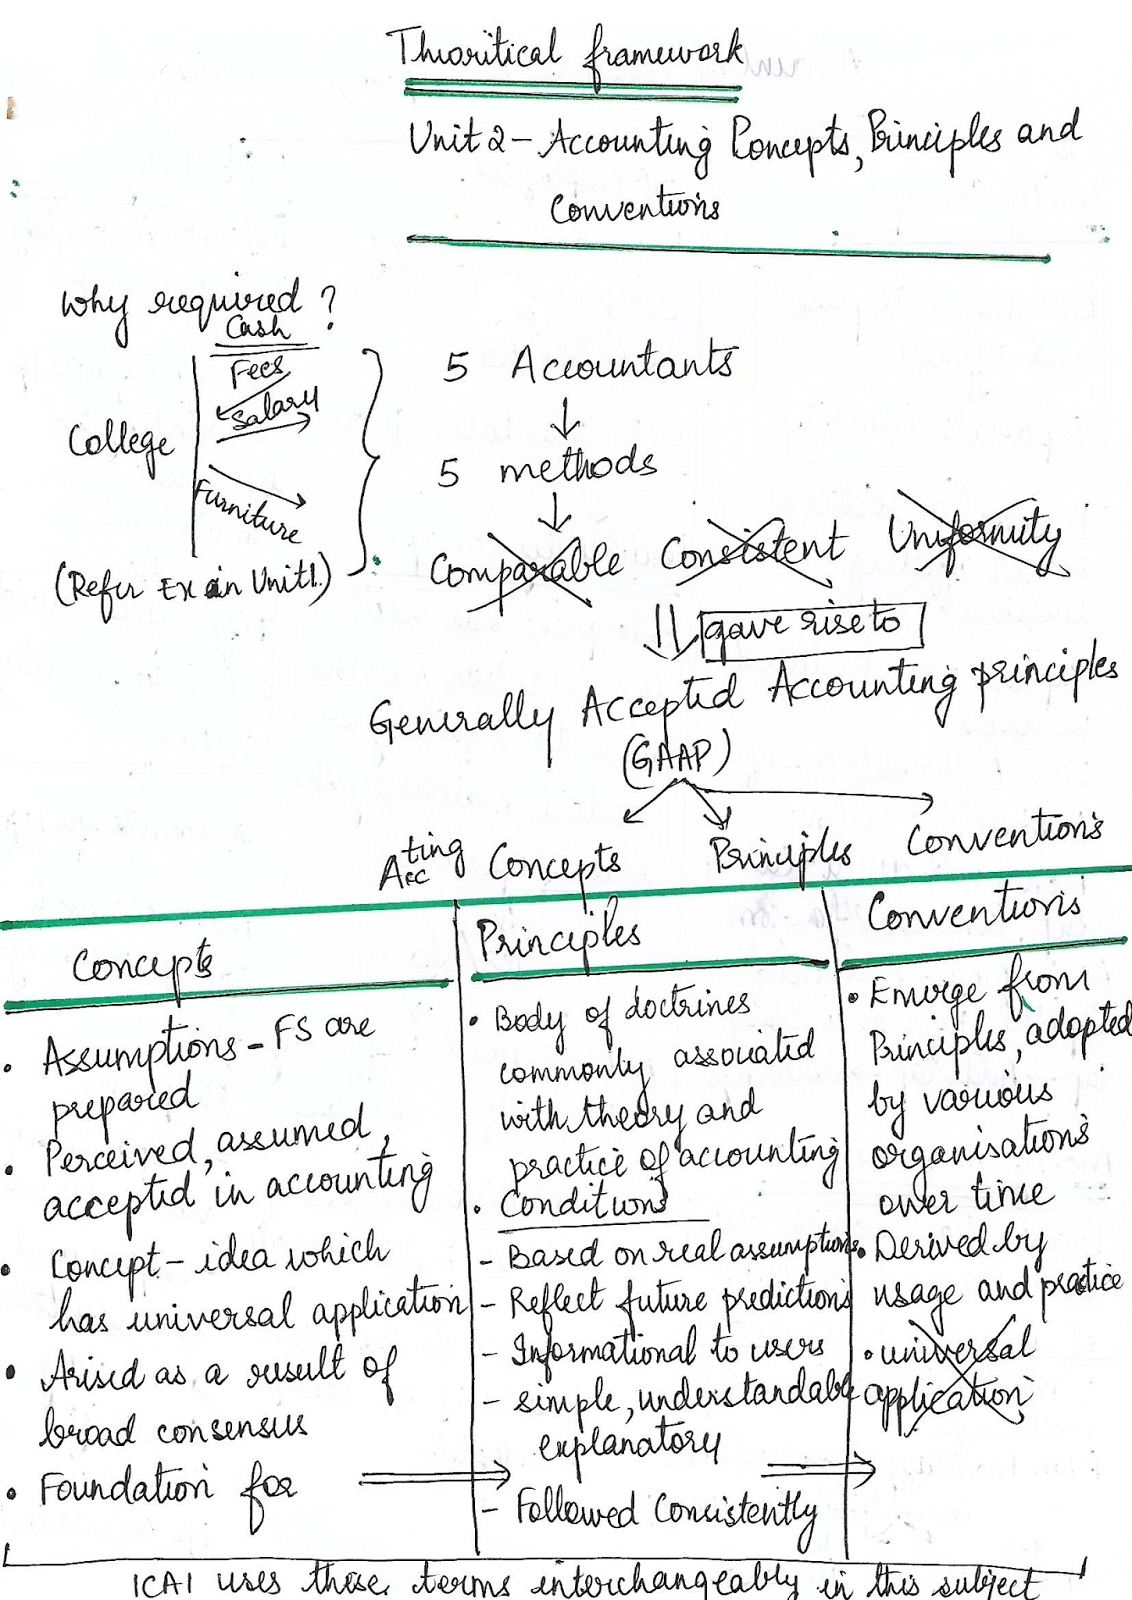 Thioritical framework
Unit 2 - Accounting Concepts, Principles and
Conventions
Why required?
Cash
Fees
Salary
College
Furniture
(Refer Ex in Unit 1.)
5 Accountants
5 methods
Comparable Consistent Uniformity
gave rise to
Generally Accepted Accounting principles
(GAAP)
Accting Concepts Principles Conventions
Concepts
• Assumptions - FS are
prepared
• Perceived, assumed,
accepted in accounting
• Concept - idea which
has universal application
• Arised as a result of
broad consensus
• Foundation for
Principles
• Body of doctrines
commonly associated
with theory and
practice of accounting
• Conditions
- Based on real assumptions
- Reflect future predictions
- Informational to users
- simple, understandable
explanatory
- Followed Consistently
Conventions
• Emerge from
Principles, adopted
by various
organisations
over time
• Derived by
usage and practice
• universal
application
ICAI uses these terms interchangeably in this subject